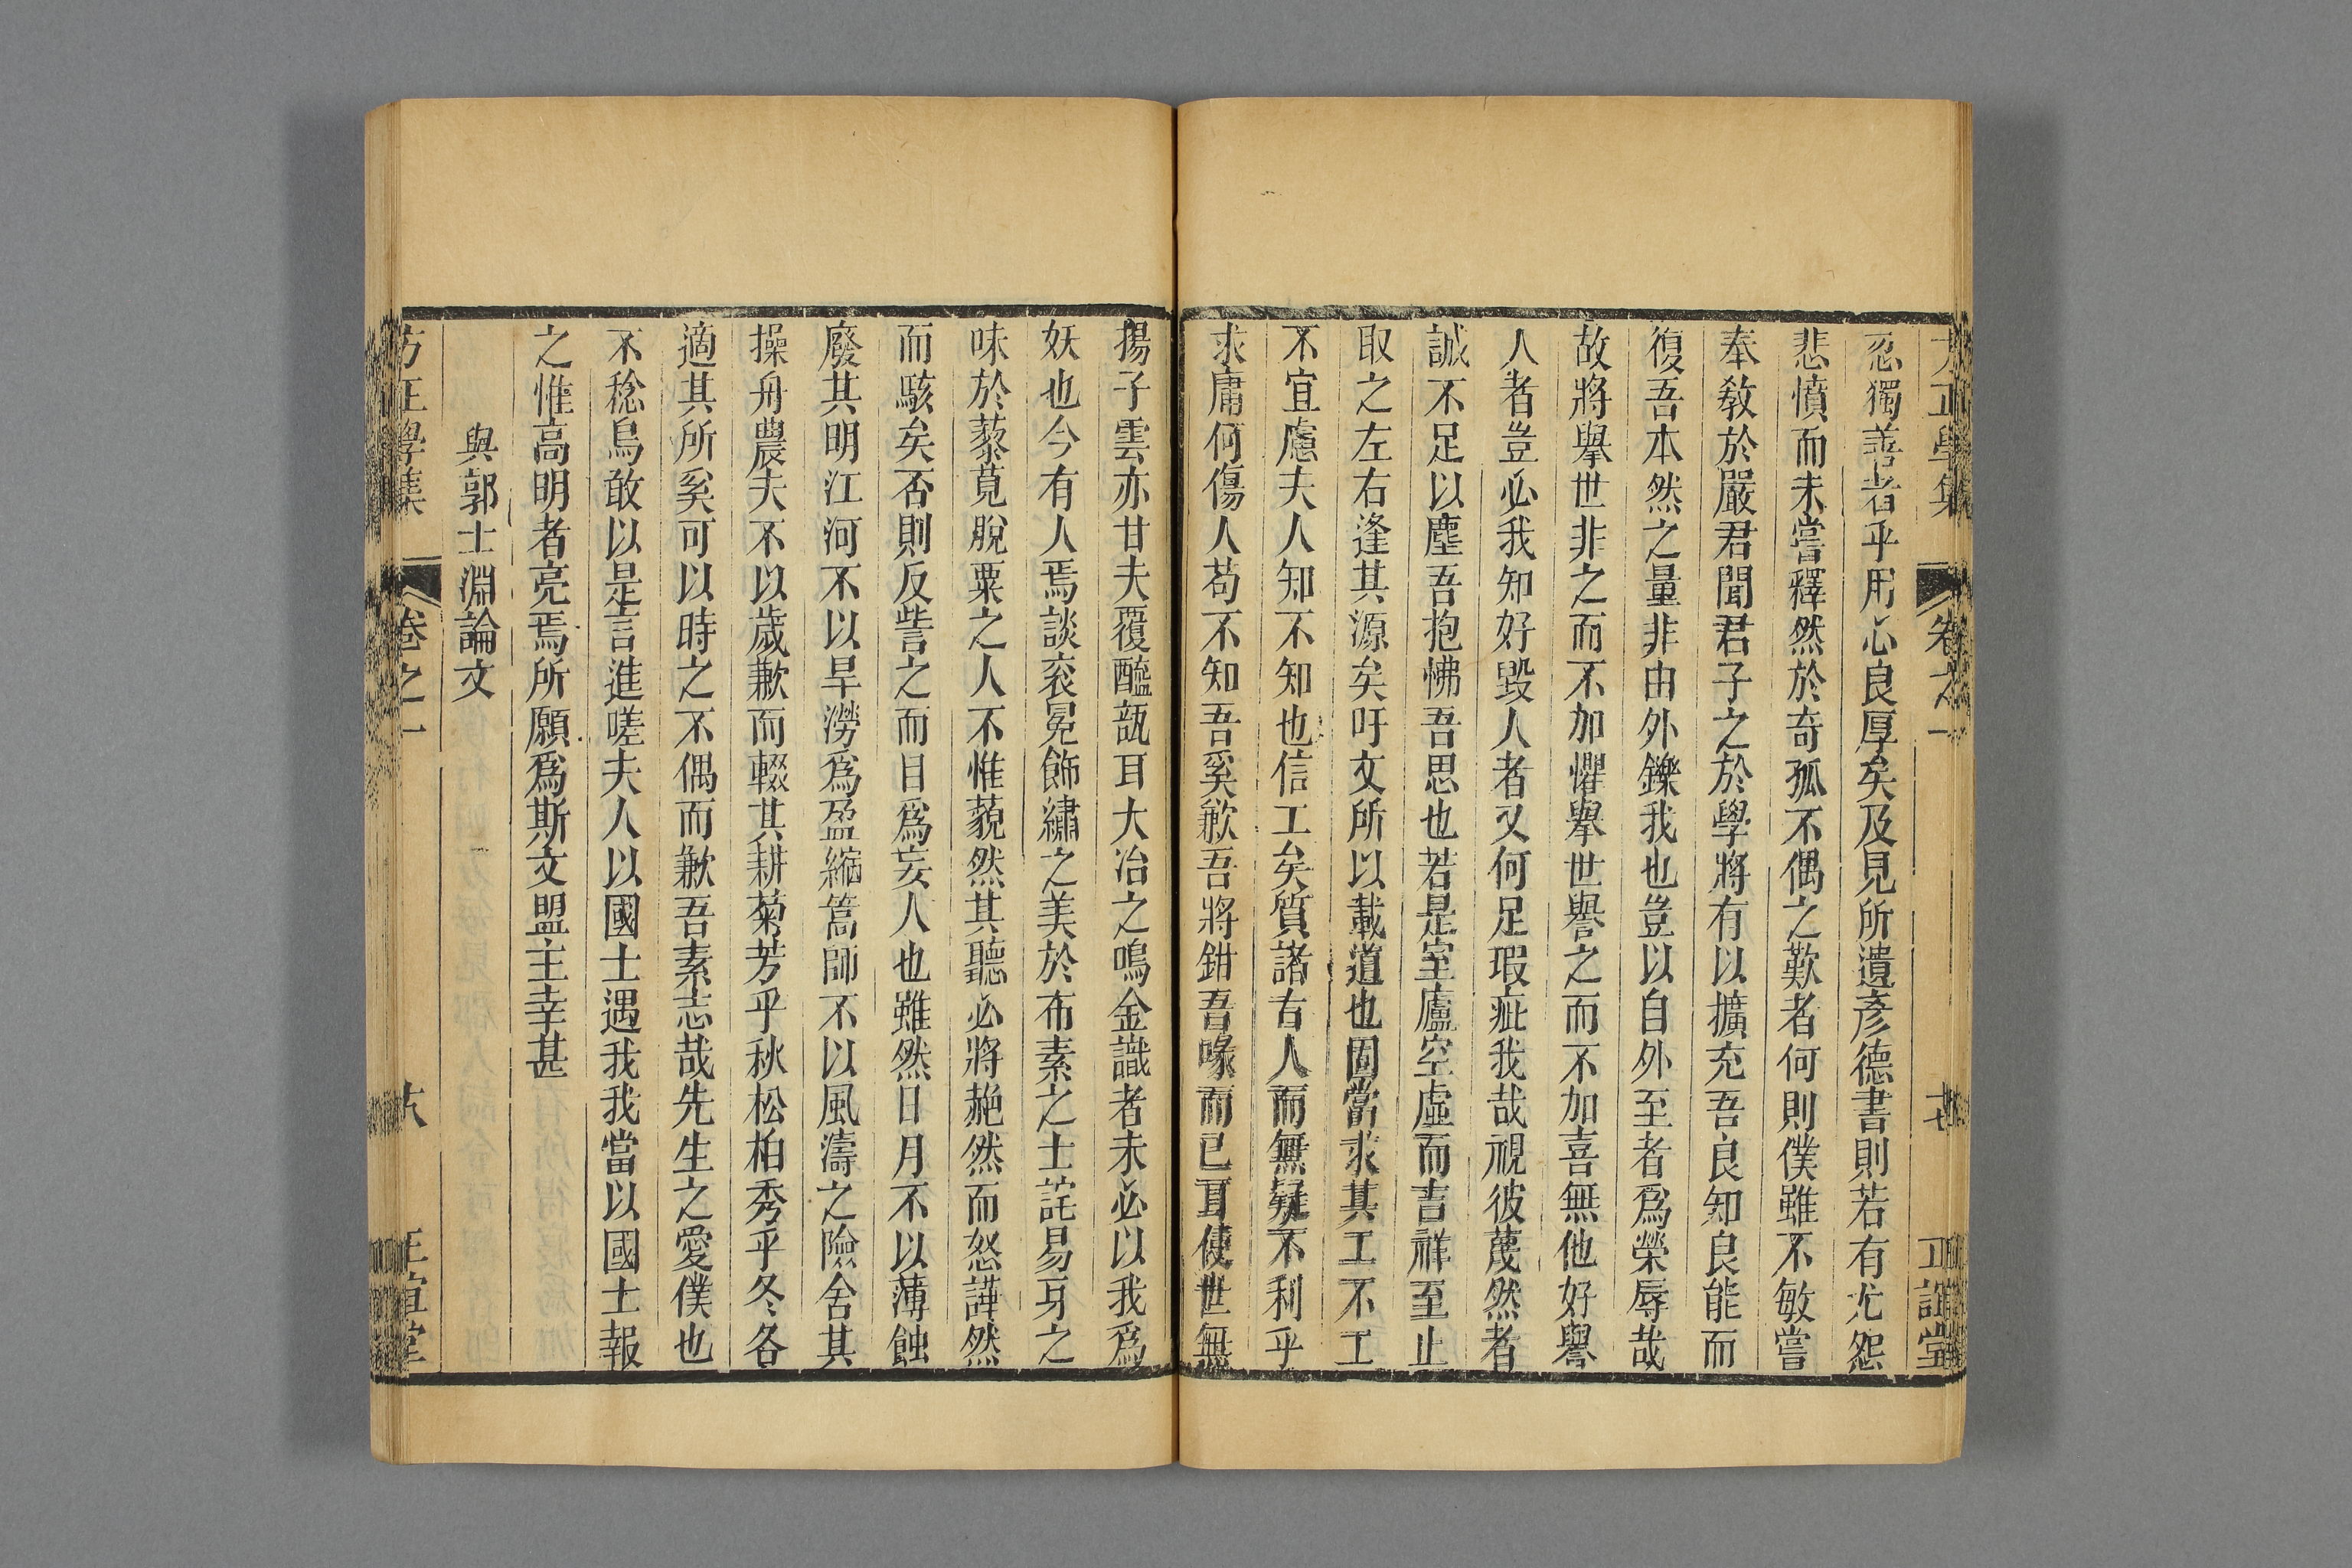 方正學集 卷之一 十七 正誼堂
忍獨善者乎用心良厚矣及見所遺彥德書則若有尤怨
悲憤而未嘗釋然於奇孤不偶之歎者何則僕雖不敏嘗
奉教於嚴君聞君子之於學將有以擴充吾良知良能而
復吾本然之量非由外鑠我也豈以自外至者爲榮辱哉
故將舉世非之而不加懼舉世譽之而不加喜無他好譽
人者豈必我知好毀人者又何足瑕疵我哉視彼蔑然者
誠不足以塵吾抱怫吾思也若是室廬空虛而吉祥至止
取之左右逢其源矣吁文所以載道也固當求其工不工
不宜慮夫人知不知也信工矣質諸古人而無疑不利乎
求庸何傷人苟不知吾奚歉吾將鉗吾喙而已耳使世無
揚子雲亦甘夫覆醯瓿耳大冶之鳴金識者未必以我爲
妖也今有人焉談衮冕飾繡之美於布素之士詫易牙之
味於藜莧脫粟之人不惟藐然其聽必將艴然而怒譁然
而駭矣否則反訾之而目爲妄人也雖然日月不以薄蝕
廢其明江河不以旱澇爲盈縮篙師不以風濤之險舍其
操舟農夫不以歲歉而輟其耕菊芳乎秋松柏秀乎冬各
適其所奚可以時之不偶而歉吾素志哉先生之愛僕也
不稔烏敢以是言進嗟夫人以國士遇我我當以國士報
之惟高明者亮焉所願爲斯文盟主幸甚
與郭士淵論文
方正學集 卷之一 十八 正誼堂